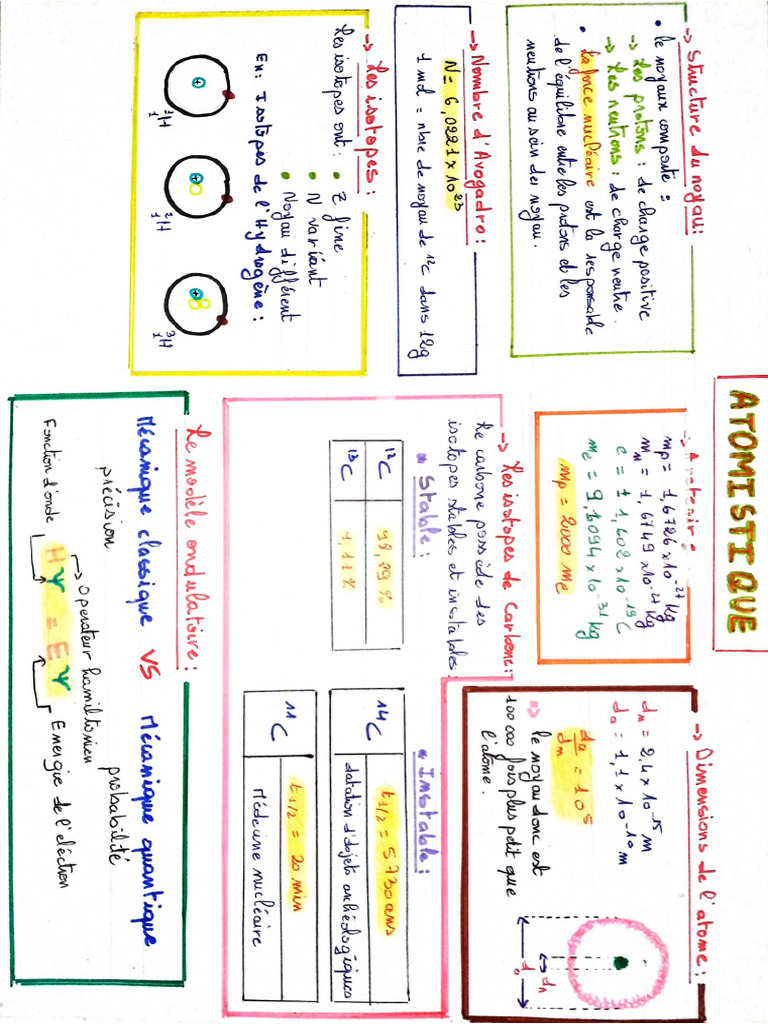 ATOMISTIQUE
→ Structure du noyau:
• le noyaux composte :
→ Les protons : de charge positive
→ Les neutrons : de charge neutre.
• La force nucléaire est la responsable
de l'equilibre entre les protons et les
neutrons au sein du noyau.
→ Nombre d'Avogadro:
N = 6,0221 x 10²³
1 mol = nbre de noyau de ¹²C dans 12g
→ Les isotopes:
Les isotopes ont : • Z fine
• N variant
• Noyau différent
Ex: Isotopes de l'Hydrogène:
¹₁H ²₁H ³₁H
→ A retenir:
mp = 1,6726 x 10⁻²⁷ kg
mn = 1,6749 x 10⁻²⁷ kg
e = 1,602 x 10⁻¹⁹ C
me = 9,1094 x 10⁻³¹ kg
mp = 2000 me
→ Dimensions de l'atome:
dn = 2,4 x 10⁻¹⁵ m
da = 1,1 x 10⁻¹⁰ m
da/dn = 10⁵
⇒ le noyau donc est
100 000 fois plus petit que
l'atome.
dn
da
→ Les isotopes de Carbone:
Le carbone possède des
isotopes stables et instables:
* Stable:
¹²C 98,89 %
¹³C 1,11 %
* Instable:
¹⁴C t1/2 = 5730 ans
datation d'objets archéologiques
¹¹C t1/2 = 20 min
Médecine nucléaire
Le modèle ondulatoire:
Mécanique classique VS Mécanique quantique
précision probabilité
→ Operateur hamiltonien
Fonction d'onde HΨ = EΨ Energie de l'eléctron